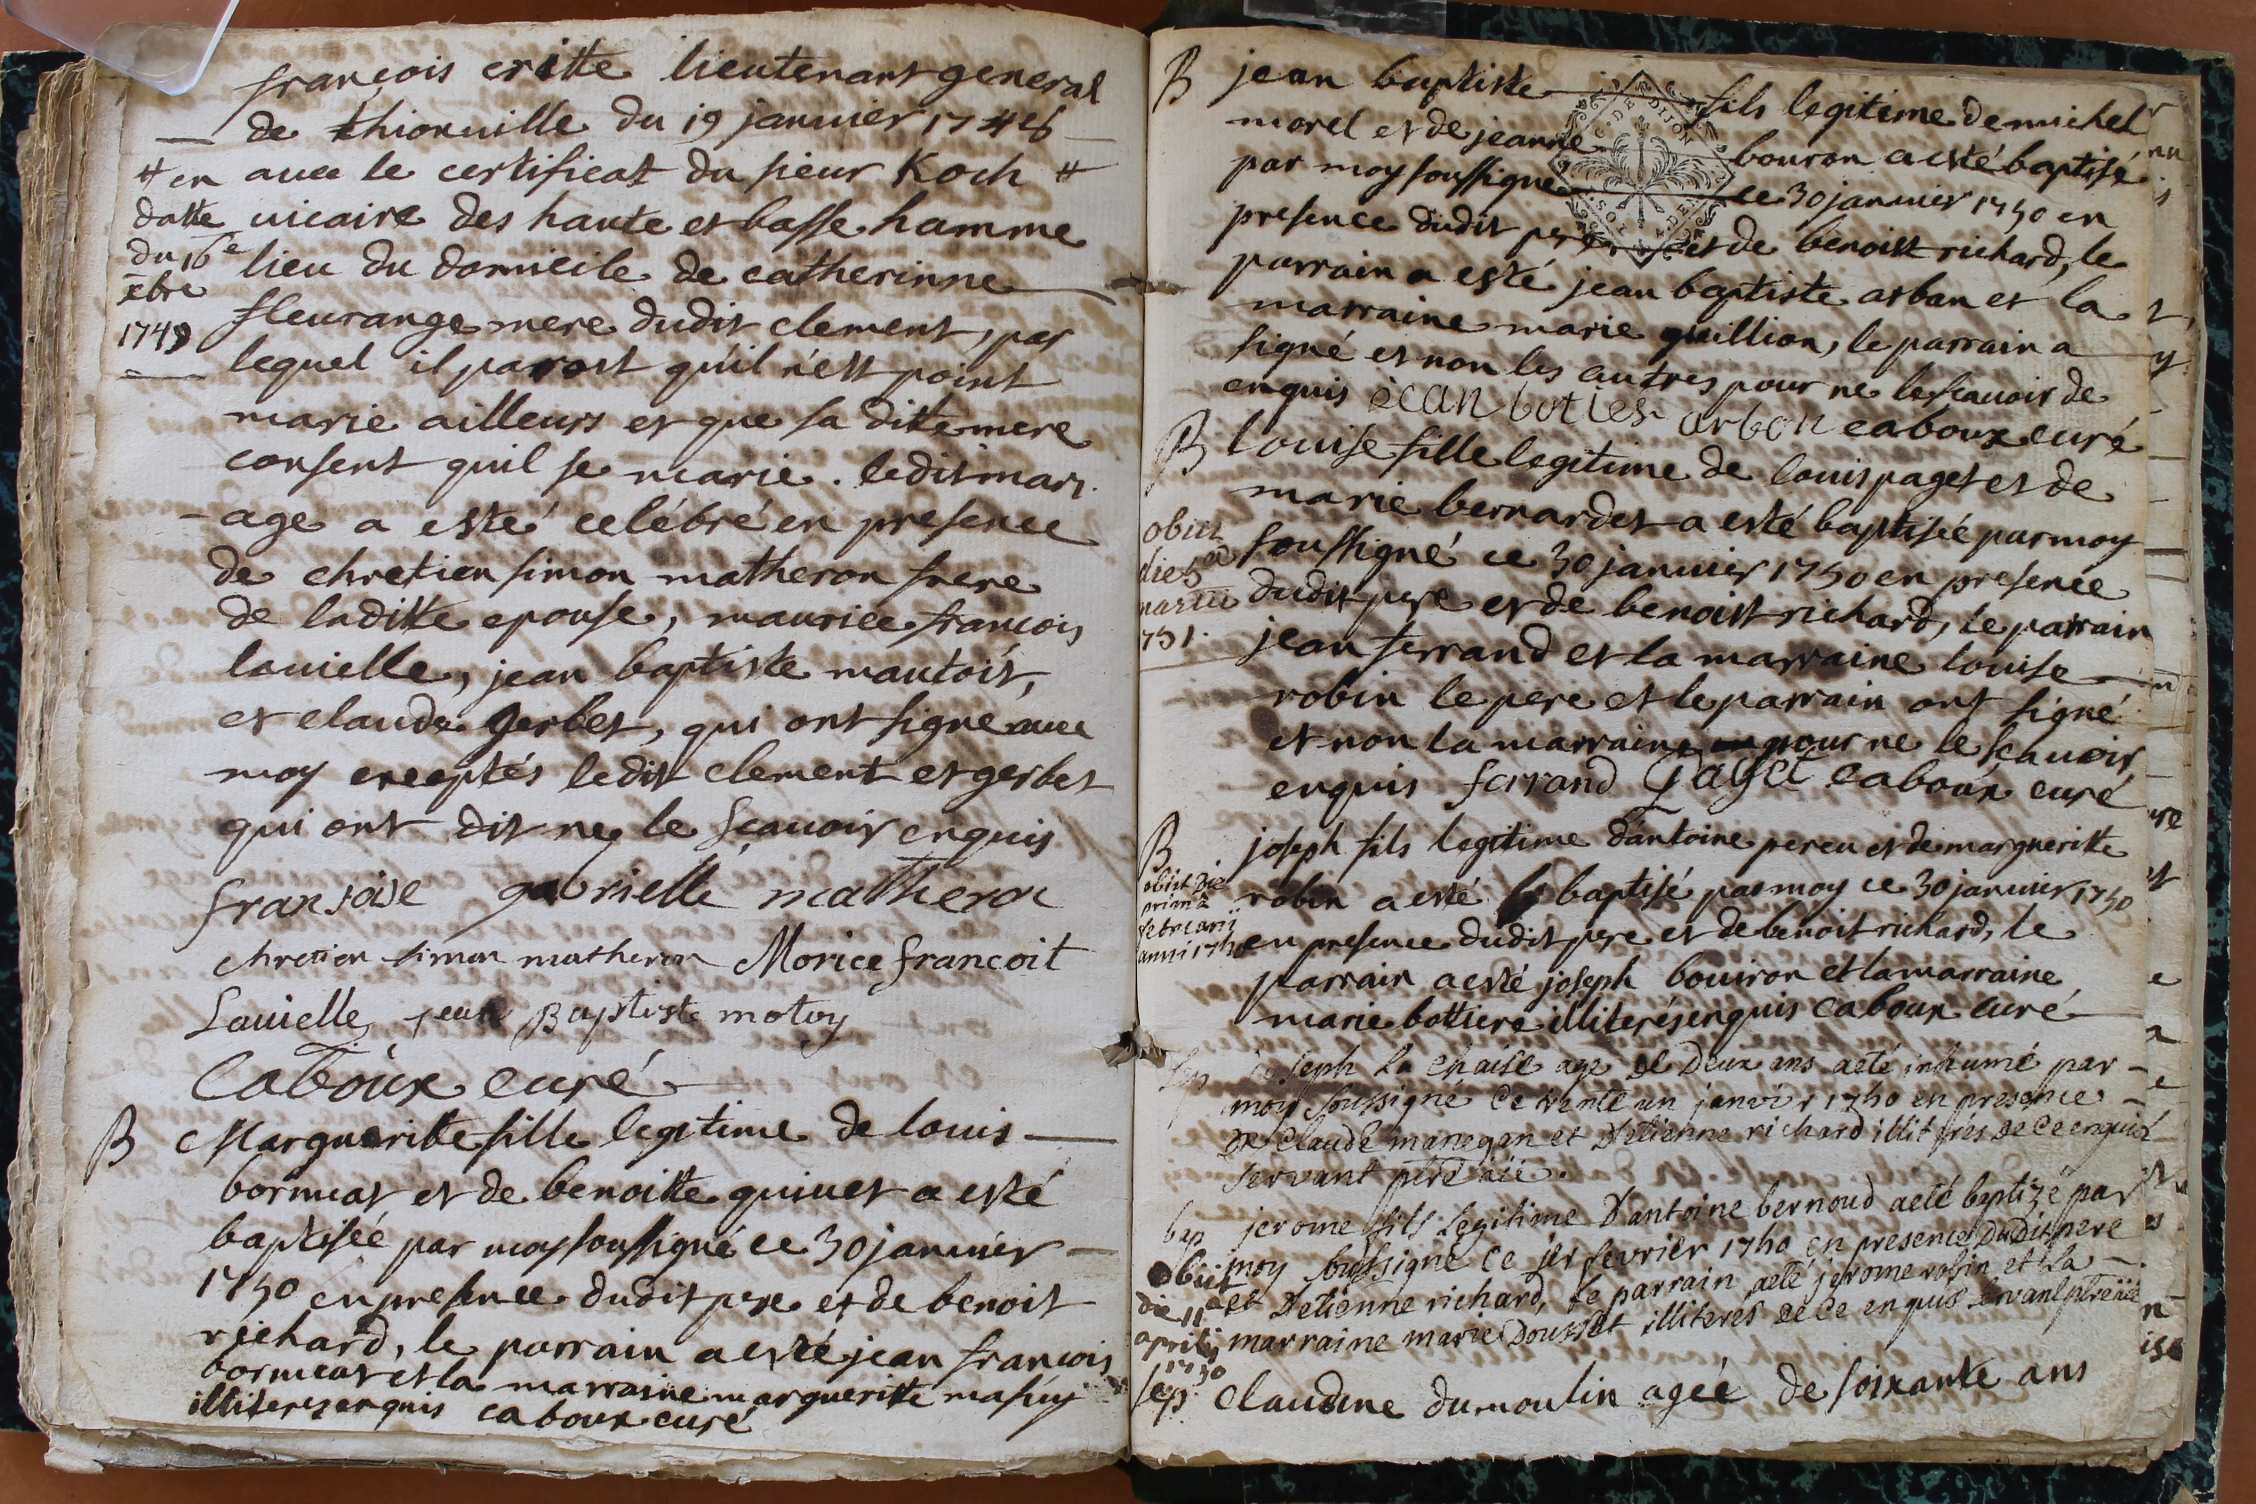 françois critte lieutenant general
de thionuille du 19 januier 1746
auec le certificat du sieur Koch #
uicaire des haute et basse hamme
lieu du domicile de catherinne
fleurange mere dudit clement, par
lequel il paroist qu'il n'est point
marie ailleurs et que sa ditte mere
consent qu'il se marie. ledit mari
-age a esté celébré en presence
de chretien simon matheron frere
de laditte epouse, maurice françois
lauielle, jean baptiste mautoit,
et claude gerbet, qui ont signe auec
moy exceptés ledit clement et gerbet
qui ont dit ne le sçauoir enquis
fransoise gabrielle matheron
chretien simon matheron Morice francoit
Lauielle jean Baptiste motoy
Caboux curé
# en
datte
du 16e
xbre
1749
B Marguerite fille legitime de louis
bormeat et de benoitte quiuet a esté
baptisée par moy soussigné ce 30 januier
1750 en presence dudit pere et de benoit
richard, le parrain a esté jean françois
bormeat et la marraine margueritte masuy
illiteres enquis caboux curé
B jean baptiste fils legitime de michel
morel et de jeanne bouron a esté baptisé
par moy soussigné ce 30 januier 1750 en
presence dudit pere et de benoist richard, le
parrain a esté jean baptiste arban et la
marraine marie guillion, le parrain a
signé et non les autres pour ne le scauoir de
enquis jean arbon caboux curé
B louise fille legitime de louis paget et de
marie bernardet a esté baptisée par moy
soussigné ce 30 januier 1750 en presence
dudit pere et de benoist richard, le parrain
jean ferrand et la marraine louise
robin le pere et le parrain ont signé
et non la marraine pour ne le scauoir
enquis ferrand Paget caboux curé
obiit
die 5a
martii
1751.
B joseph fils legitime d'antoine pereu et de margueritte
robin a esté baptisé par moy ce 30 januier 1750
en presence dudit pere et de benoit richard, le
parrain a esté joseph bouiron et la marraine
marie bottiere illiterés enquis caboux curé
obiit die
prima
februarii
anni 1750
Sep joseph La chaise age de Deux ans aeté inhumé par
moy soussigné Ce trente un janvier 1750 en presence
De Claude manegan et D'etienne richard illitéres de Ce enquis
servant ptre vic.
bap jerome fils Legitime D'antoine bernoud aeté baptizé par
moy soussigné Ce 1er fevrier 1750 en presence Dudit pere
et D'etienne richard, Le parrain aeté jerome robin et La
marraine marie Dousset illiteres de Ce enquis servant ptre vic
obiit
die 11a
aprilis
1750
Sep. Claudine dumoulin agée de soixante ans